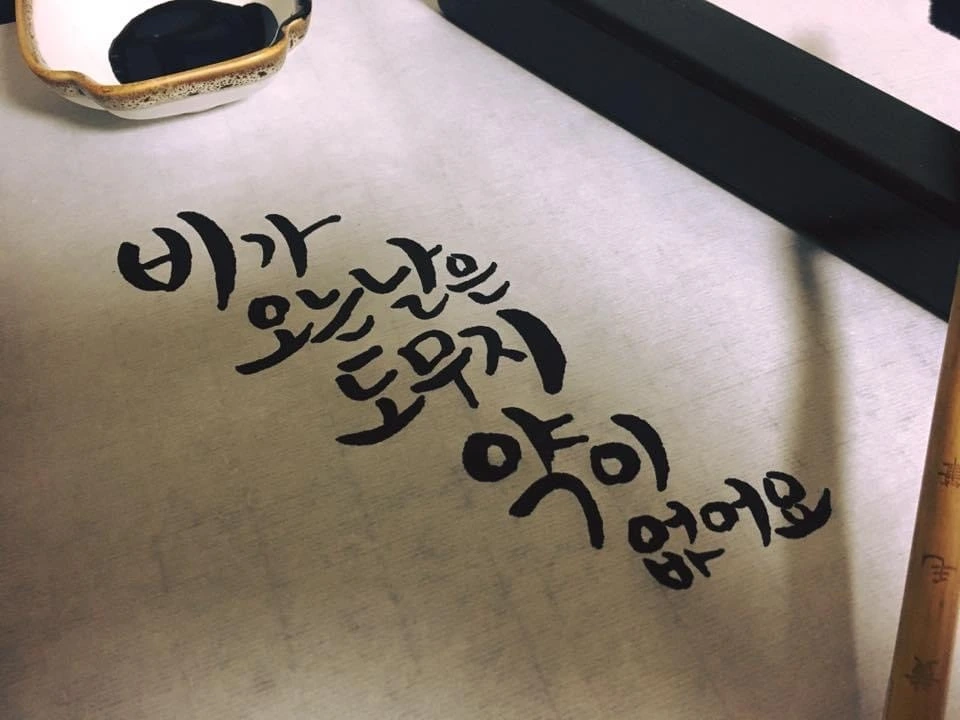 비가
오는 날은
도무지
약이
없어요